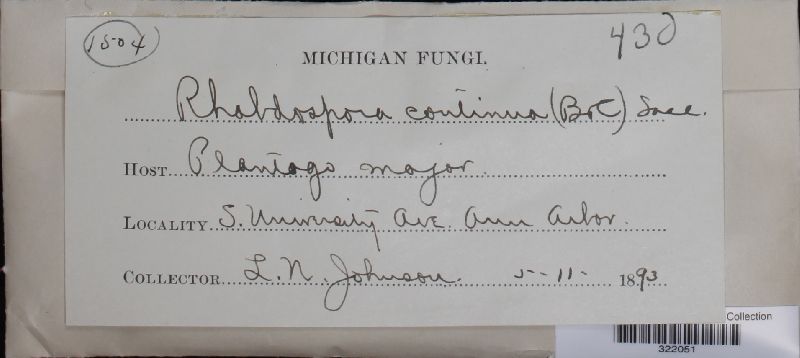 1504
430
MICHIGAN FUNGI.
Rhabdospora continua (B&C) Sacc.
HOST Plantago major
LOCALITY S. University Ave. Ann Arbor.
COLLECTOR L. N. Johnson. 5-11- 1893
Collection
322051